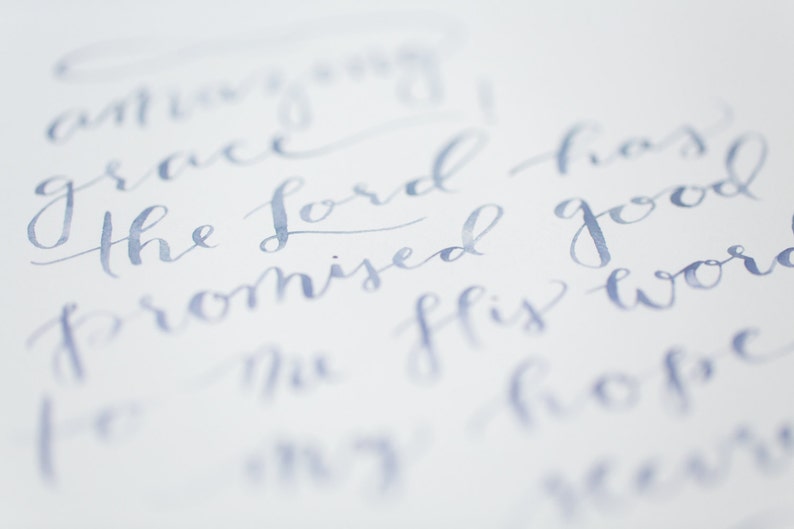 amazing
grace!
the Lord has
promised good
to me His word
my hope
secures